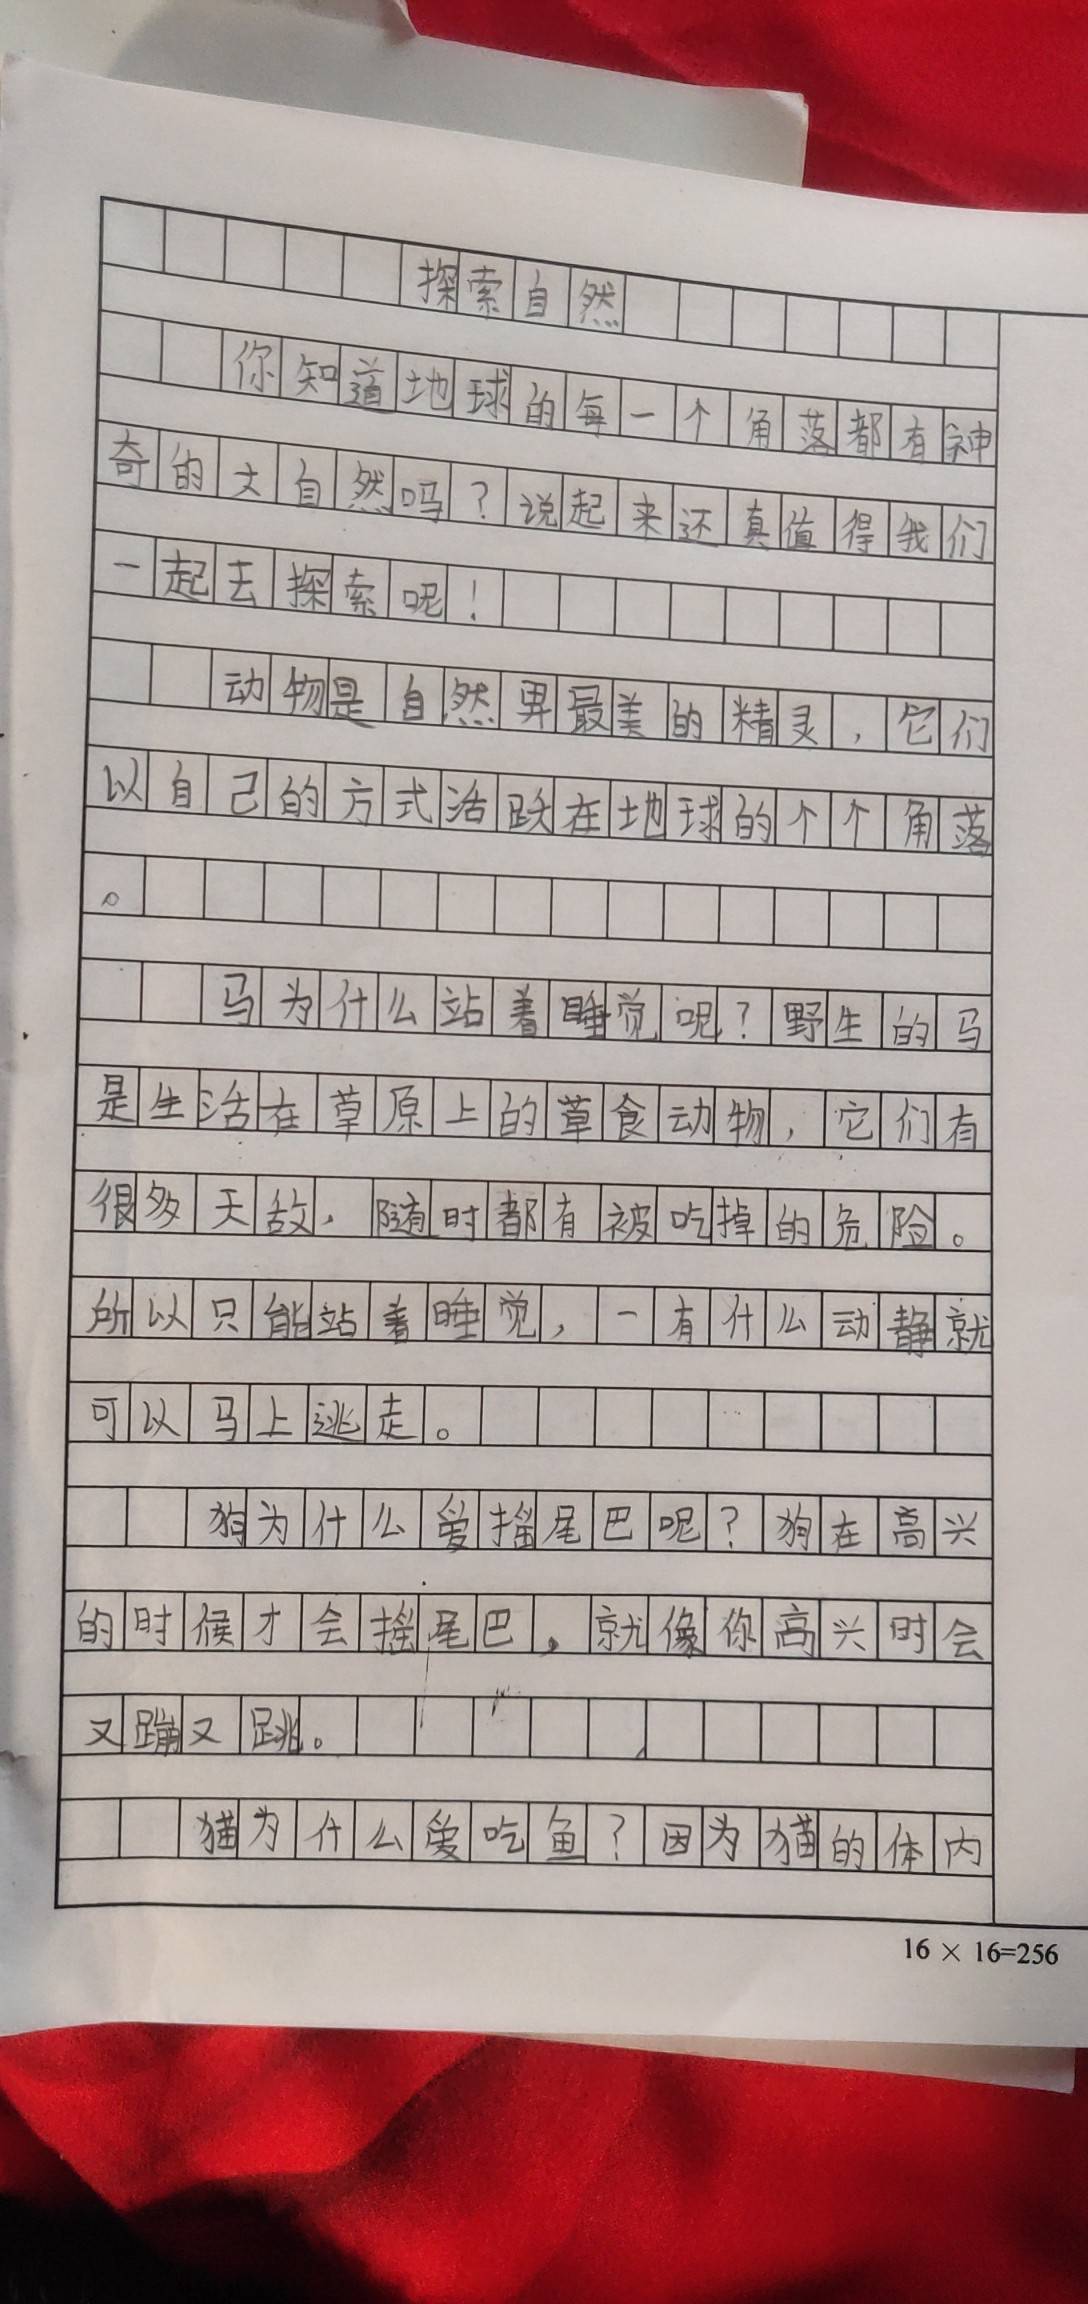 探索自然
你知道地球的每一个角落都有神
奇的大自然吗？说起来还真值得我们
一起去探索呢！
动物是自然界最美的精灵，它们
以自己的方式活跃在地球的个个角落
。
马为什么站着睡觉呢？野生的马
是生活在草原上的草食动物，它们有
很多天敌，随时都有被吃掉的危险。
所以只能站着睡觉，一有什么动静就
可以马上逃走。
狗为什么爱摇尾巴呢？狗在高兴
的时候才会摇尾巴，就像你高兴时会
又蹦又跳。
猫为什么爱吃鱼？因为猫的体内
16 × 16=256